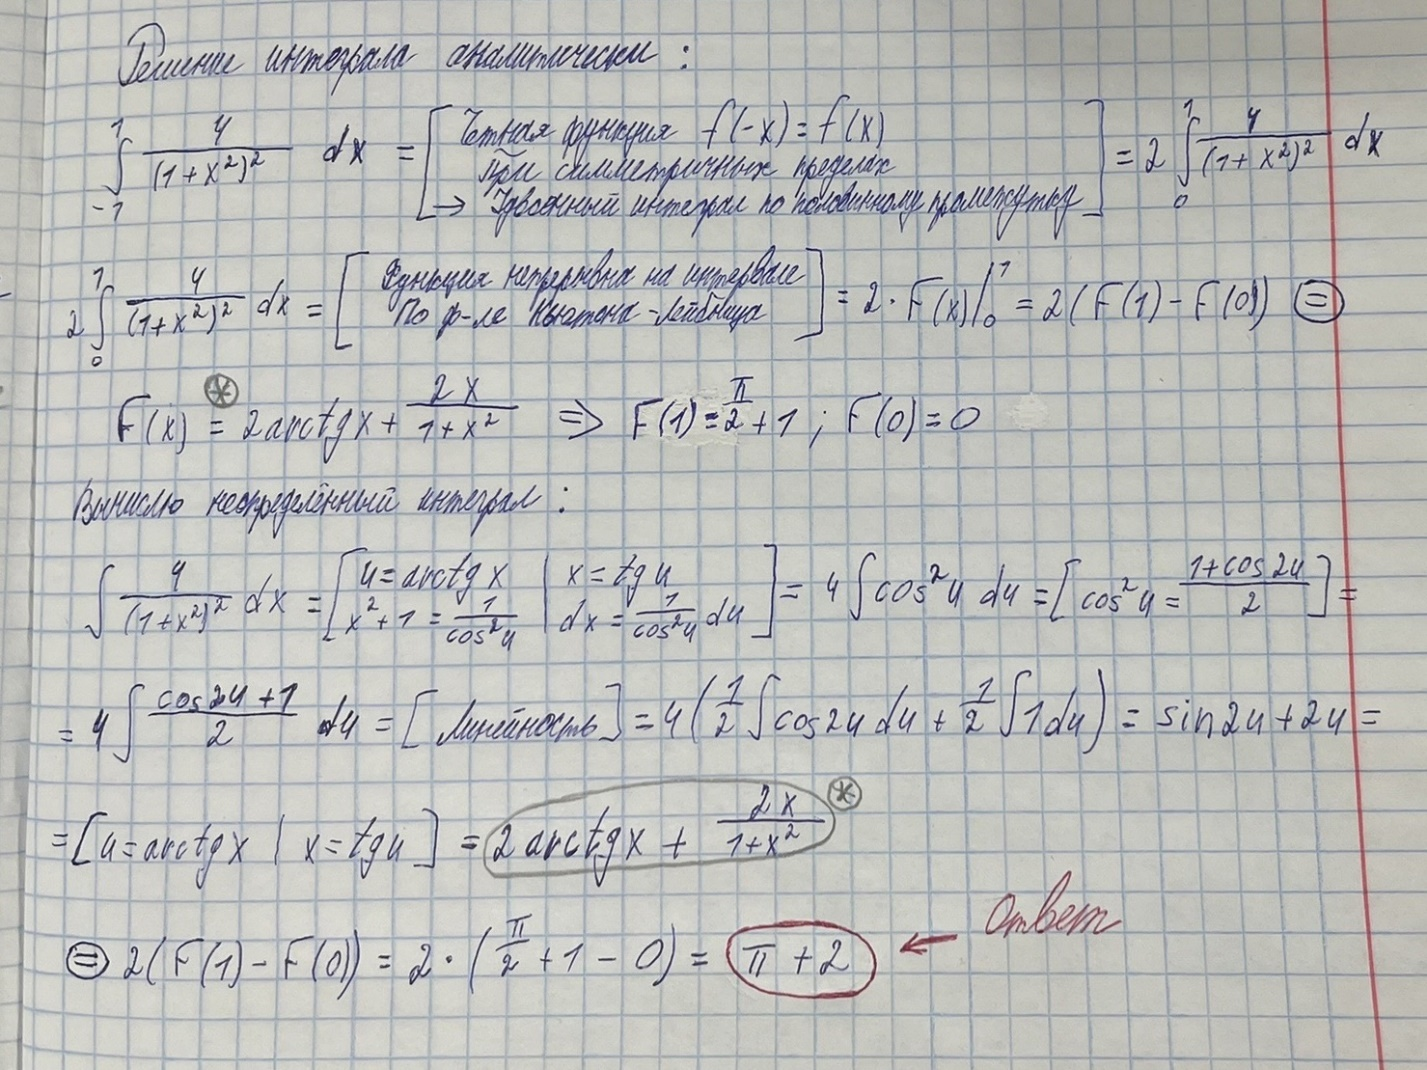 Решение интеграла аналитически :
∫₋₁¹ 4/(1+x²)² dx = [ Чётная функция f(-x) = f(x)
При симметричных пределах
→ Удвоенный интеграл по половинному промежутку ] = 2 ∫₀¹ 4/(1+x²)² dx
2 ∫₀¹ 4/(1+x²)² dx = [ Функция непрерывна на интервале
По ф-ле Ньютона-Лейбница ] = 2 · F(x)|₀¹ = 2(F(1) - F(0)) ⊜
F(x) =^⊛ 2arctgx + 2x/(1+x²) => F(1) = π/2 + 1 ; F(0) = 0
Вычислю неопределённый интеграл :
∫ 4/(1+x²)² dx = [ u = arctgx | x = tgu
x²+1 = 1/cos²u | dx = 1/cos²u du ] = 4 ∫cos²u du = [ cos²u = (1+cos2u)/2 ] =
= 4 ∫ (cos2u+1)/2 du = [ Линейность ] = 4( 1/2 ∫cos2u du + 1/2 ∫1du ) = sin2u + 2u =
= [ u = arctgx | x = tgu ] = 2arctgx + 2x/(1+x²) ⊛
ответ
⊜ 2(F(1) - F(0)) = 2 · ( π/2 + 1 - 0 ) = π + 2 ←